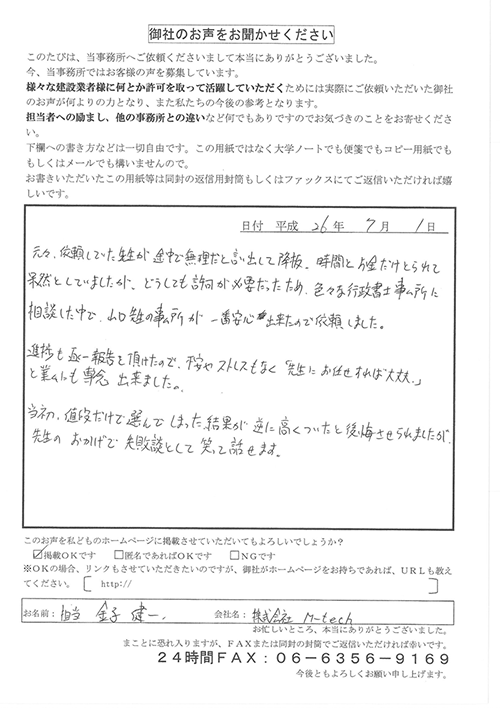 御社のお声をお聞かせください
このたびは、当事務所へご依頼くださいまして本当にありがとうございました。
今、当事務所ではお客様の声を募集しています。
様々な建設業者様に何とか許可を取って活躍していただくためには実際にご依頼いただいた御社
のお声が何よりの力となり、また私たちの今後の参考となります。
担当者への励まし、他の事務所との違いなど何でもありですのでお気づきのことをお寄せくださ
い。
下欄への書き方などは一切自由です。この用紙ではなく大学ノートでも便箋でもコピー用紙でも
もしくはメールでも構いませんので。
お書きいただいたこの用紙等は同封の返信用封筒もしくはファックスにてご返信いただければ嬉
しいです。
日付 平成 26 年 7 月 1 日
元々、依頼していた先生が途中で無理だと言い出して降板。時間とお金だけとられて
呆然としていましたが、どうしても許可が必要だったため、色々な行政書士事ム所に
相談した中で、山口先生の事ム所が一番安心出来たので依頼しました。
進捗も逐一報告を頂けたので、不安やストレスもなく「先生にお任せすれば大丈夫。」
と業ムにも専念出来ました。
当初、値段だけで選んでしまった結果が逆に高くついたと後悔させられましたが、
先生のおかげで失敗談として笑って話せます。
このお声を私どものホームページに掲載させていただいてもよろしいでしょうか？
☑掲載OKです □匿名であればOKです □NGです
※OKの場合、リンクもさせていただきたいのですが、御社がホームページをお持ちであれば、URLも教え
てください。［ http:// ］
お名前： 担当 金子 健一 会社名： 株式会社 M-tech
お忙しいところ、本当にありがとうございました。
まことに恐れ入りますが、FAXまたは同封の封筒でご返信いただければ幸いです。
24時間FAX：06-6356-9169
今後ともよろしくお願い申し上げます。